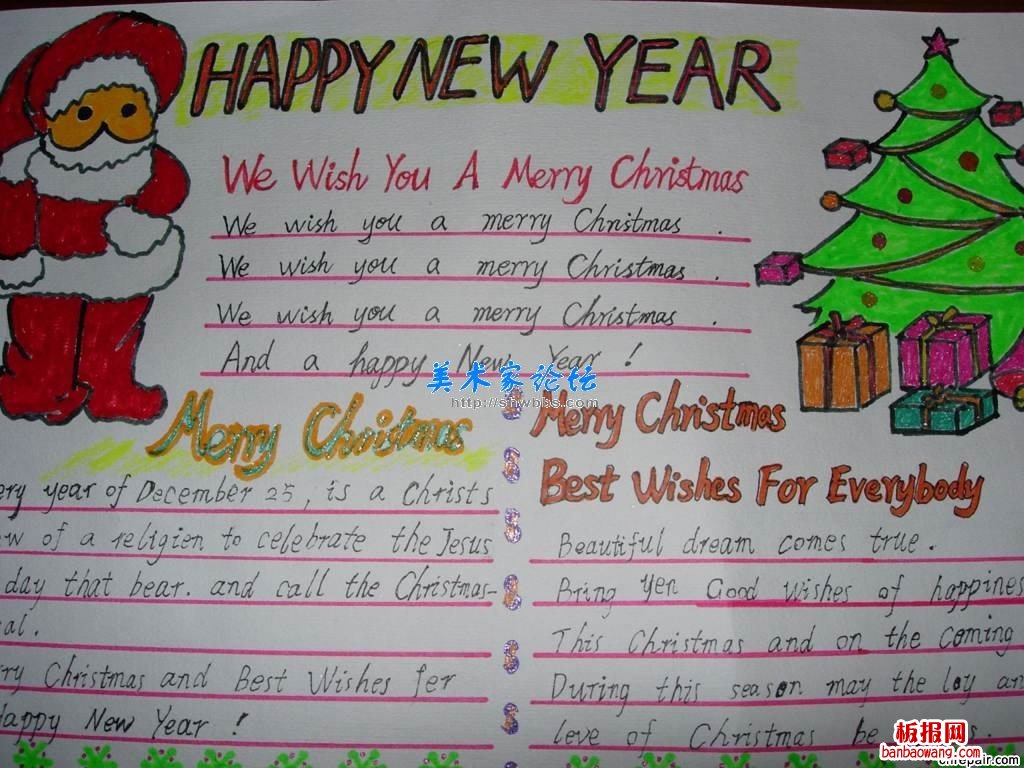 HAPPY NEW YEAR
We Wish You A Merry Christmas
We wish you a merry Christmas .
We wish you a merry Christmas .
We wish you a merry Christmas .
And a happy New Year !
美术家论坛
http://sfiwbbs.com
Merry Christmas
ery year of December 25, is a Christs
w of a religien to celebrate the Jesus
day that bear. and call the Christmas-
al.
ry Christmas and Best Wishes fer
Happy New Year !
Merry Christmas
Best Wishes For Everybody
Beautiful dream comes true.
Bring yen Good Wishes of happines
This Christmas and on the coming
During this season may the loy an
leve of Christmas be
板报网
banbaowang.com